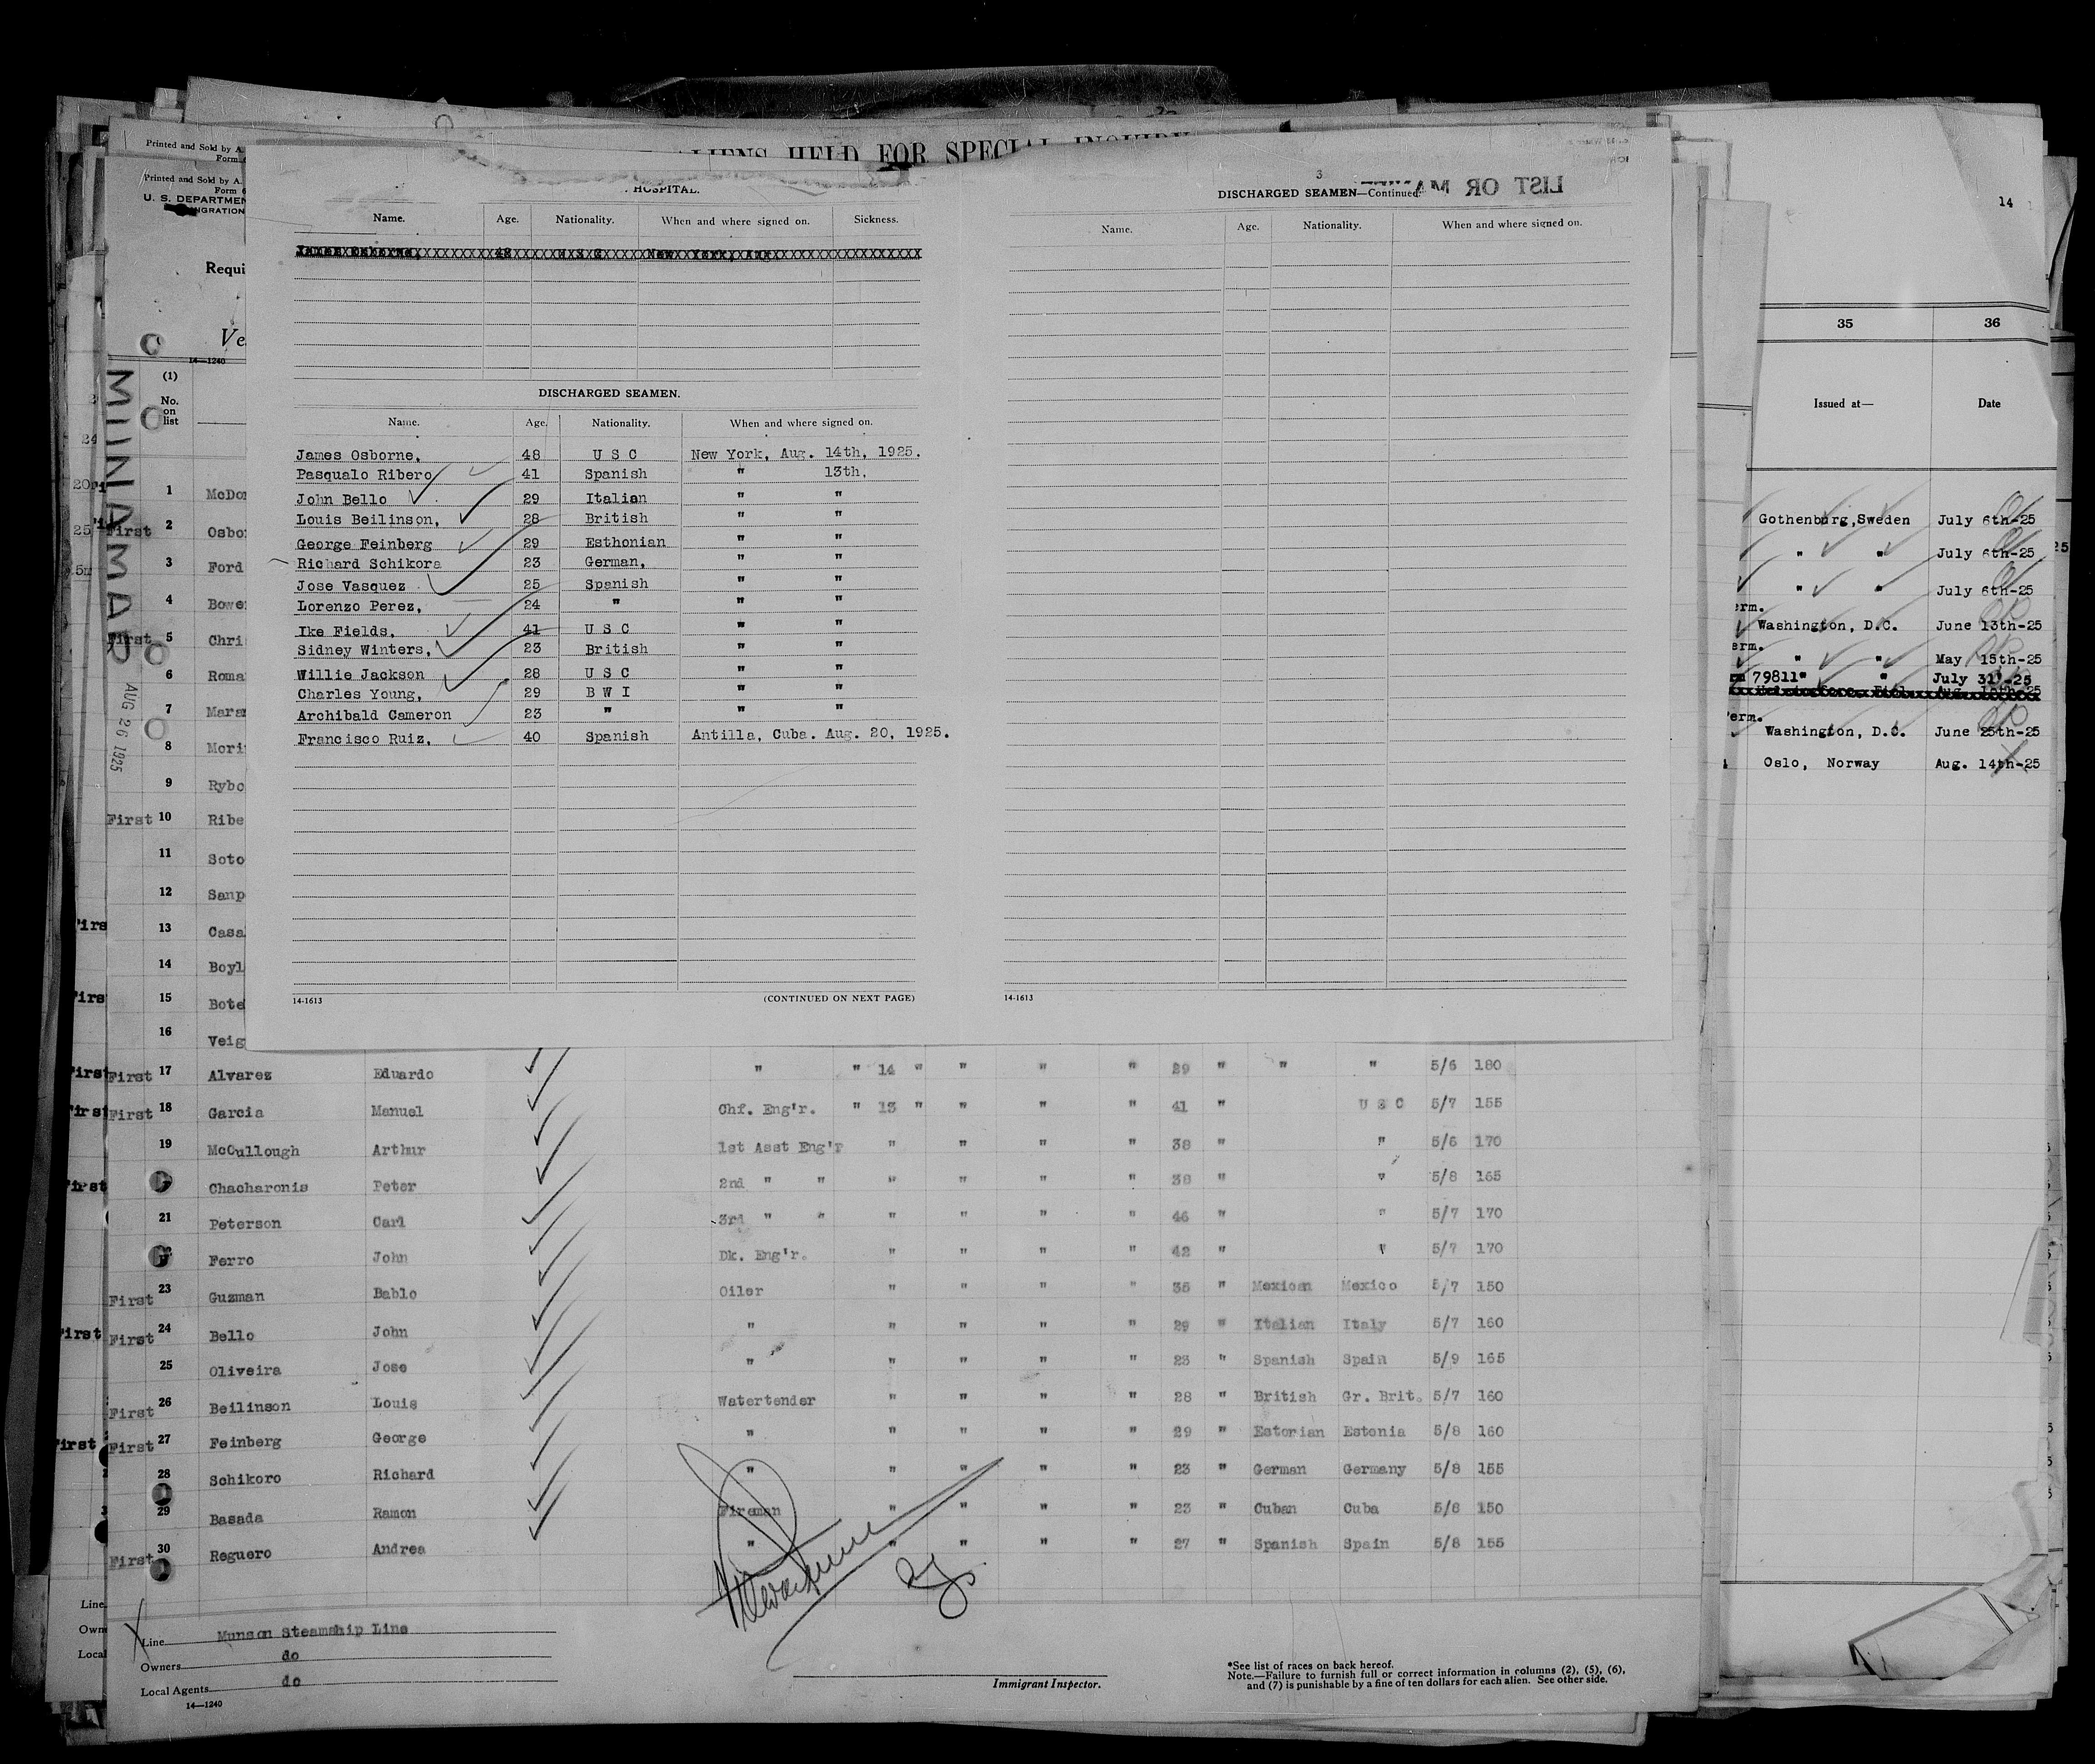 ALIENS HELD FOR SPECIAL INQUIRY
Printed and Sold by A.
Form
Printed and Sold by A.
Form 6
U. S. DEPARTMEN
IGRATION
Requi
Ve
14—1240
(1)
No.
on
list
MUNAMAR
AUG 26 1925
HOSPITAL.
Name. Age. Nationality. When and where signed on. Sickness.
James Osborne, 48 U S C New York, Aug.
DISCHARGED SEAMEN.
Name. Age. Nationality. When and where signed on.
James Osborne, 48 U S C New York, Aug. 14th, 1925.
Pasqualo Ribero 41 Spanish " 13th,
John Bello 29 Italian " "
Louis Beilinson, 28 British " "
George Feinberg 29 Esthonian " "
Richard Schikora 23 German, " "
Jose Vasquez 25 Spanish " "
Lorenzo Perez, 24 " " "
Ike Fields, 41 U S C " "
Sidney Winters, 23 British " "
Willie Jackson 28 U S C " "
Charles Young, 29 B W I " "
Archibald Cameron 23 " " "
Francisco Ruiz, 40 Spanish Antilla, Cuba. Aug. 20, 1925.
14-1613 (CONTINUED ON NEXT PAGE)
3
DISCHARGED SEAMEN—Continued.
LIST OR MA
Name. Age. Nationality. When and where signed on.
14-1613
14
35 36
Issued at— Date
Gothenburg,Sweden July 6th-25
" " July 6th-25
" " July 6th-25
erm.
Washington, D.C. June 13th-25
erm.
" " May 15th-25
79811" " July 31-25
erm.
Washington, D.C. June 25th-25
Oslo, Norway Aug. 14th-25
1 McDo
First 2 Osbo
3 Ford
4 Bowe
First 5 Chri
6 Roma
7 Mara
8 Mori
9 Rybo
First 10 Ribe
11 Soto
12 Sanp
13 Casa
14 Boyl
15 Bote
16 Veig
First 17 Alvarez Eduardo " " 14 " " " " 29 " " " 5/6 180
First 18 Garcia Manuel Chf. Eng'r. " 13 " " " " 41 " U S C 5/7 155
19 McCullough Arthur 1st Asst Eng'r " " " " 38 " " 5/6 170
Chacharonis Peter 2nd " " " " " " 38 " " 5/8 165
21 Peterson Carl 3rd " " " " " " 46 " " 5/7 170
Ferro John Dk. Eng'r. " " " " 42 " " 5/7 170
First 23 Guzman Bablo Oiler " " " " 35 " Mexican Mexico 5/7 150
First 24 Bello John " " " " " 29 " Italian Italy 5/7 160
25 Oliveira Jose " " " " " 23 " Spanish Spain 5/9 165
First 26 Beilinson Louis Watertender " " " " 28 " British Gr. Brit. 5/7 160
First 27 Feinberg George " " " " " 29 " Estorian Estonia 5/8 160
28 Schikoro Richard " " " " " 23 " German Germany 5/8 155
29 Basada Ramon Fireman " " " " 23 " Cuban Cuba 5/8 150
First 30 Reguero Andrea " " " " " 27 " Spanish Spain 5/8 155
Line Munson Steamship Line
Owners do
Local Agents do
14—1240
Immigrant Inspector.
*See list of races on back hereof.
Note.—Failure to furnish full or correct information in columns (2), (5), (6),
and (7) is punishable by a fine of ten dollars for each alien. See other side.